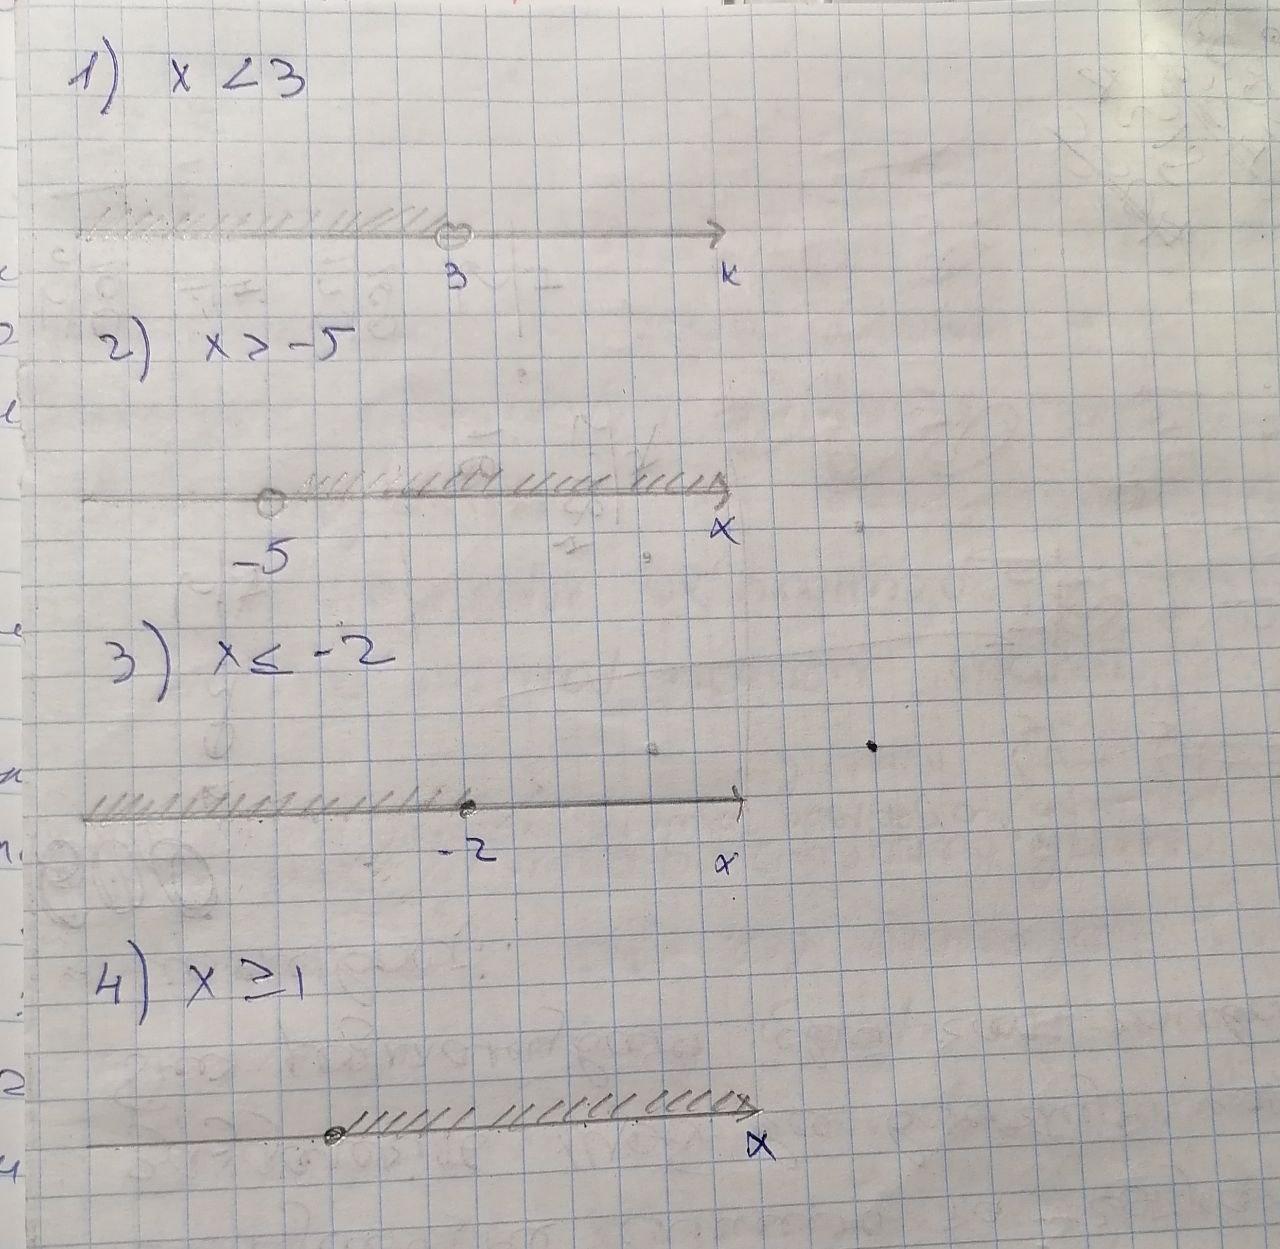 1) x < 3
3 x
2) x > -5
-5 x
3) x ≤ -2
-2 x
4) x ≥ 1
x